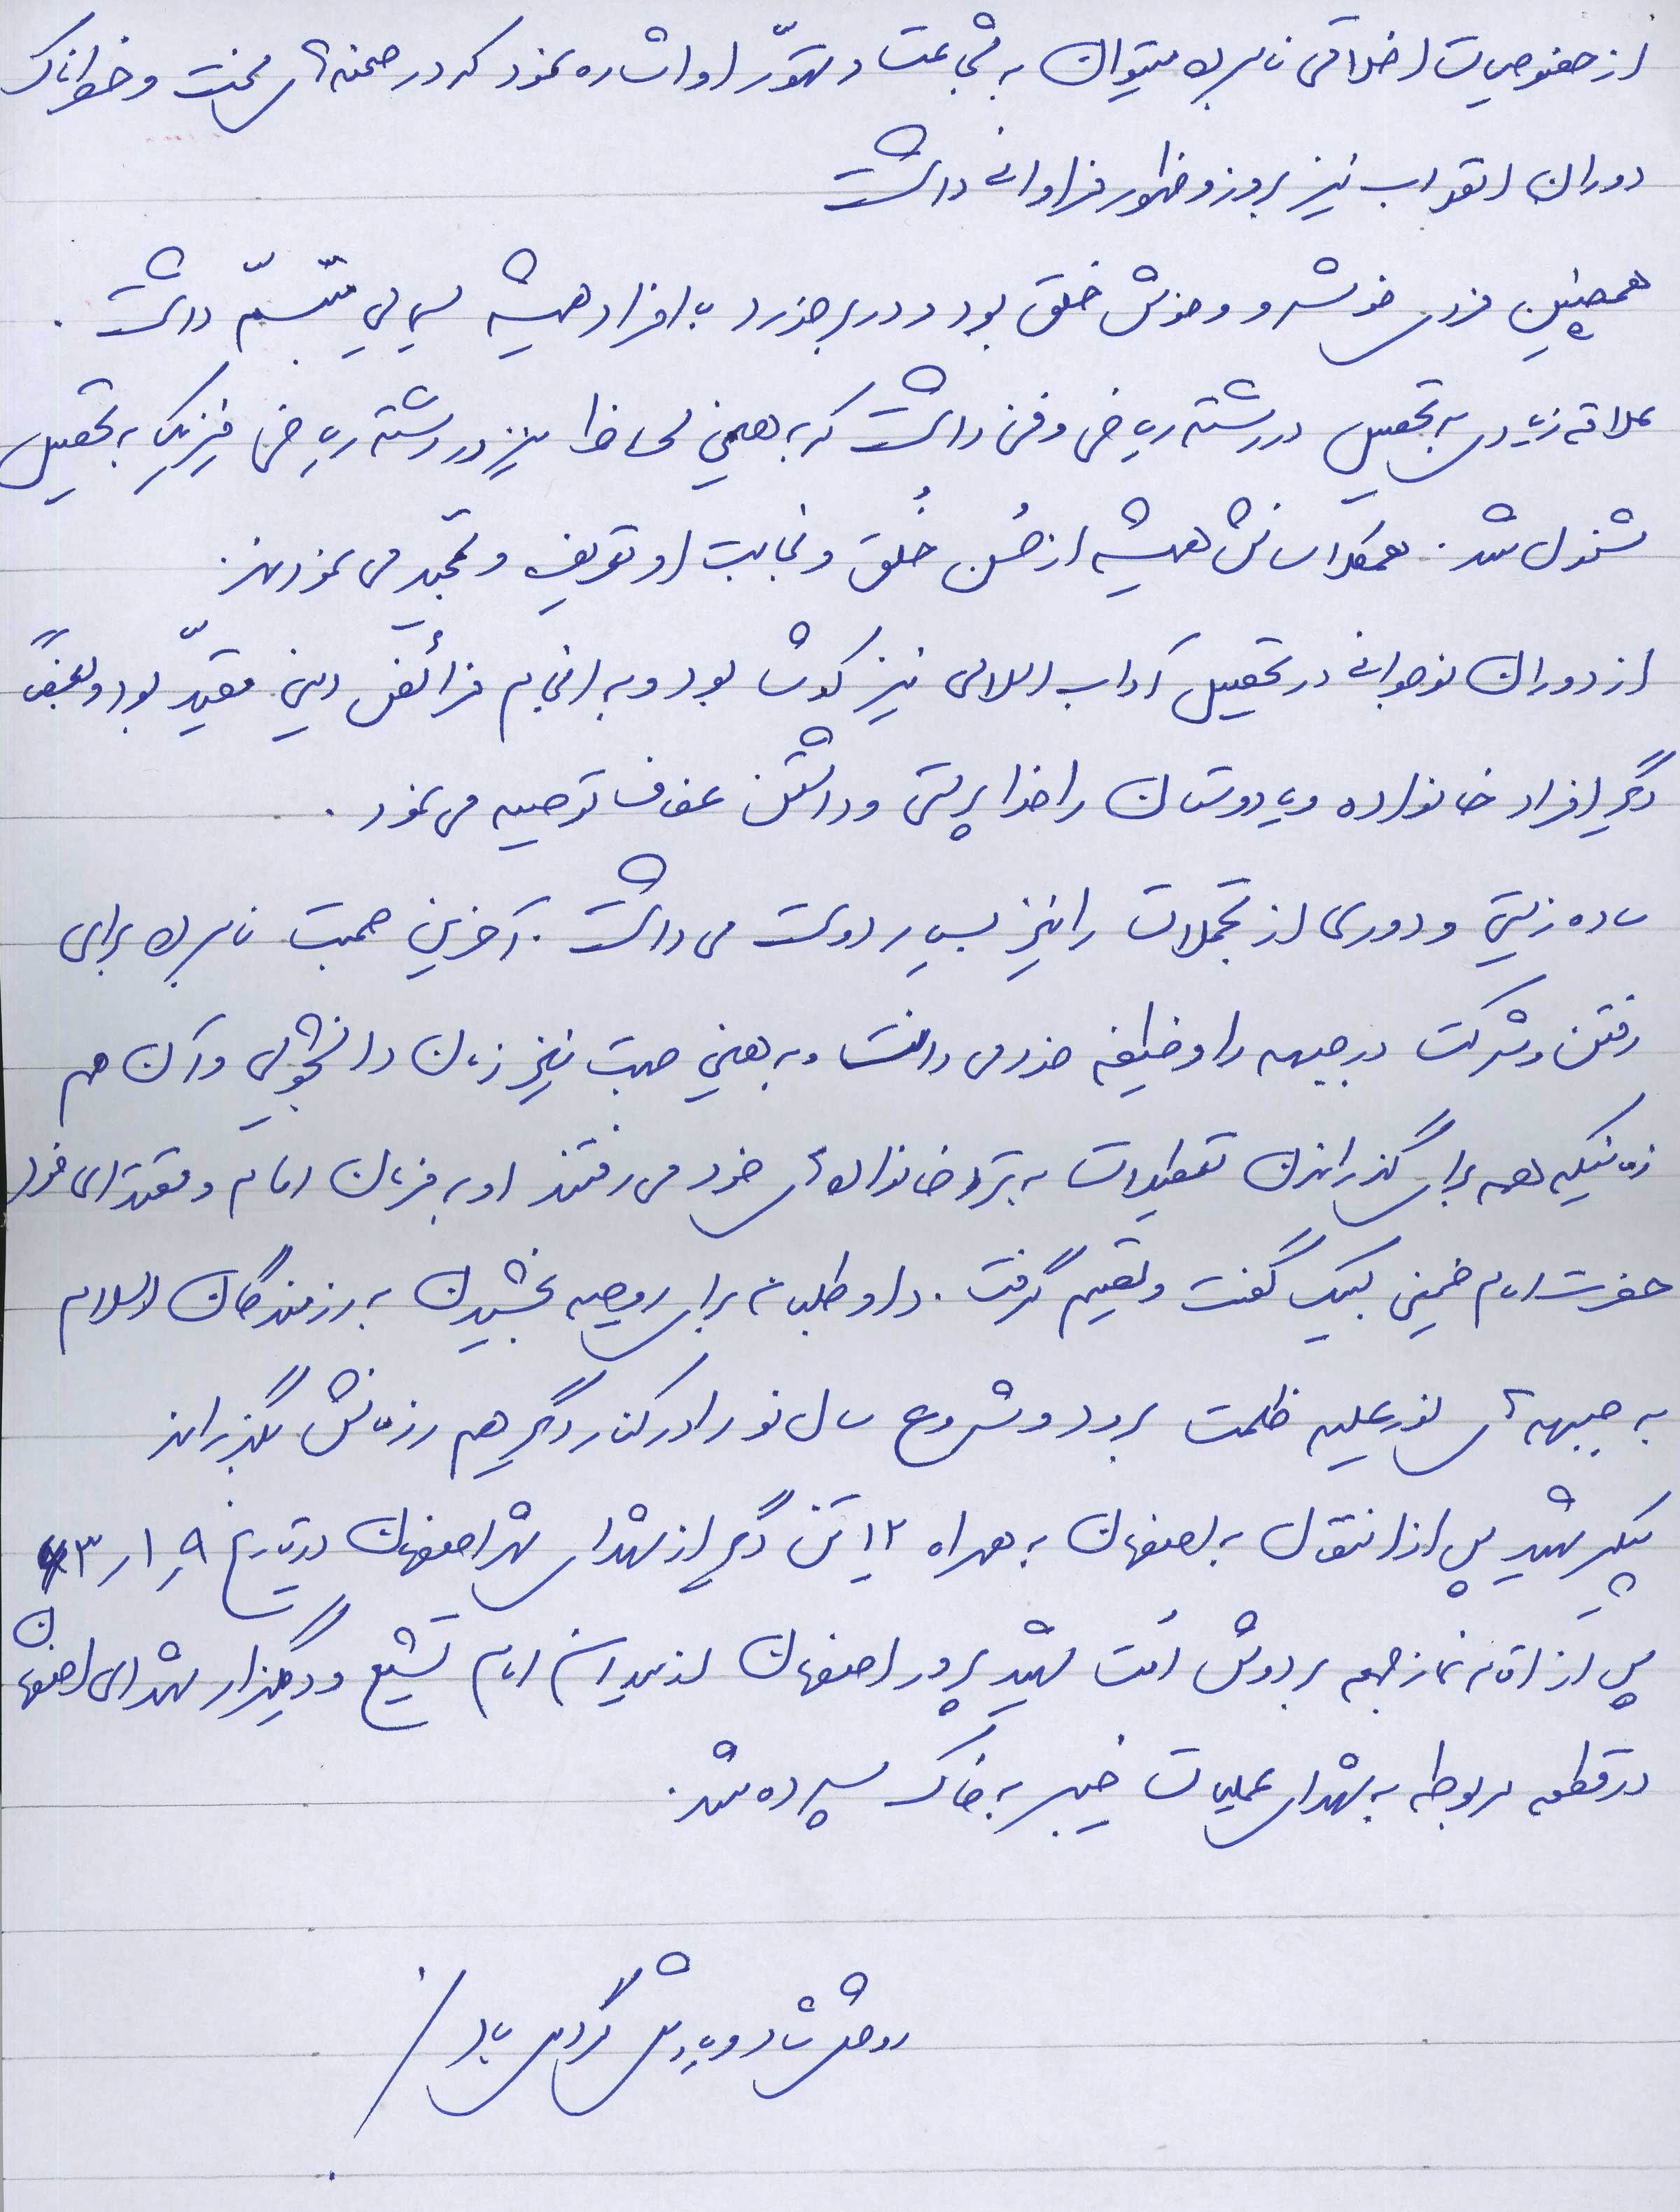 از خصوصیات اخلاقی نامبرده میتوان به شجاعت و تهوّر او اشاره نمود که در صحنه‌های سخت و خطرناک
دوران انقلاب نیز بروز و ظهور فراوانی داشت
همچنین فردی خوشرو و خوش خلق بود و در برخورد با افراد همیشه سیمایی متبسّم داشت .
علاقه زیادی به تحصیل در رشته ریاضی و فنی داشت که به همین لحاظ نیز در رشته ریاضی فیزیک به تحصیل
مشغول شد . همکلاسانش همیشه از حُسن خُلق و نجابت او تعریف و تمجید می نمودند .
از دوران نوجوانی در تحصیل آداب اسلامی نیز کوشا بود و به انجام فرائض دینی مقیّد بود و بعضاً
دیگر افراد خانواده و یا دوستان را خدا پرستی و داشتن عفاف توصیه می نمود .
ساده زیستی و دوری از تجملات را نیز بسیار دوست می داشت . آخرین صحبت نامبرده برای
رفتن و شرکت در جبهه را وظیفه خود می دانست و به همین جهت نیز زمان دانشجویی و آن هم
زمانیکه همه برای گذراندن تعطیلات به نزد خانواده‌های خود می رفتند او به فرمان امام و مقتدای خود
حضرت امام خمینی لبیک گفت و تصمیم گرفت . داوطلبانه برای روحیه بخشیدن به رزمندگان اسلام
به جبهه‌های نور علیه ظلمت برود و شروع سال نو را در کنار دیگر هم رزمانش بگذراند
پیکر شهید پس از انتقال به اصفهان به همراه ۱۲ تن دیگر از شهدای شهر اصفهان در تاریخ ۹ر۱ر۶۳
پس از اقامه نماز جمعه بر دوش امت شهید پرور اصفهان از میدان امام تشییع و در گلزار شهدای اصفهان
در قطعه مربوطه به شهدای عملیات خیبر به خاک سپرده شد .
روحش شاد و یادش گرامی باد /